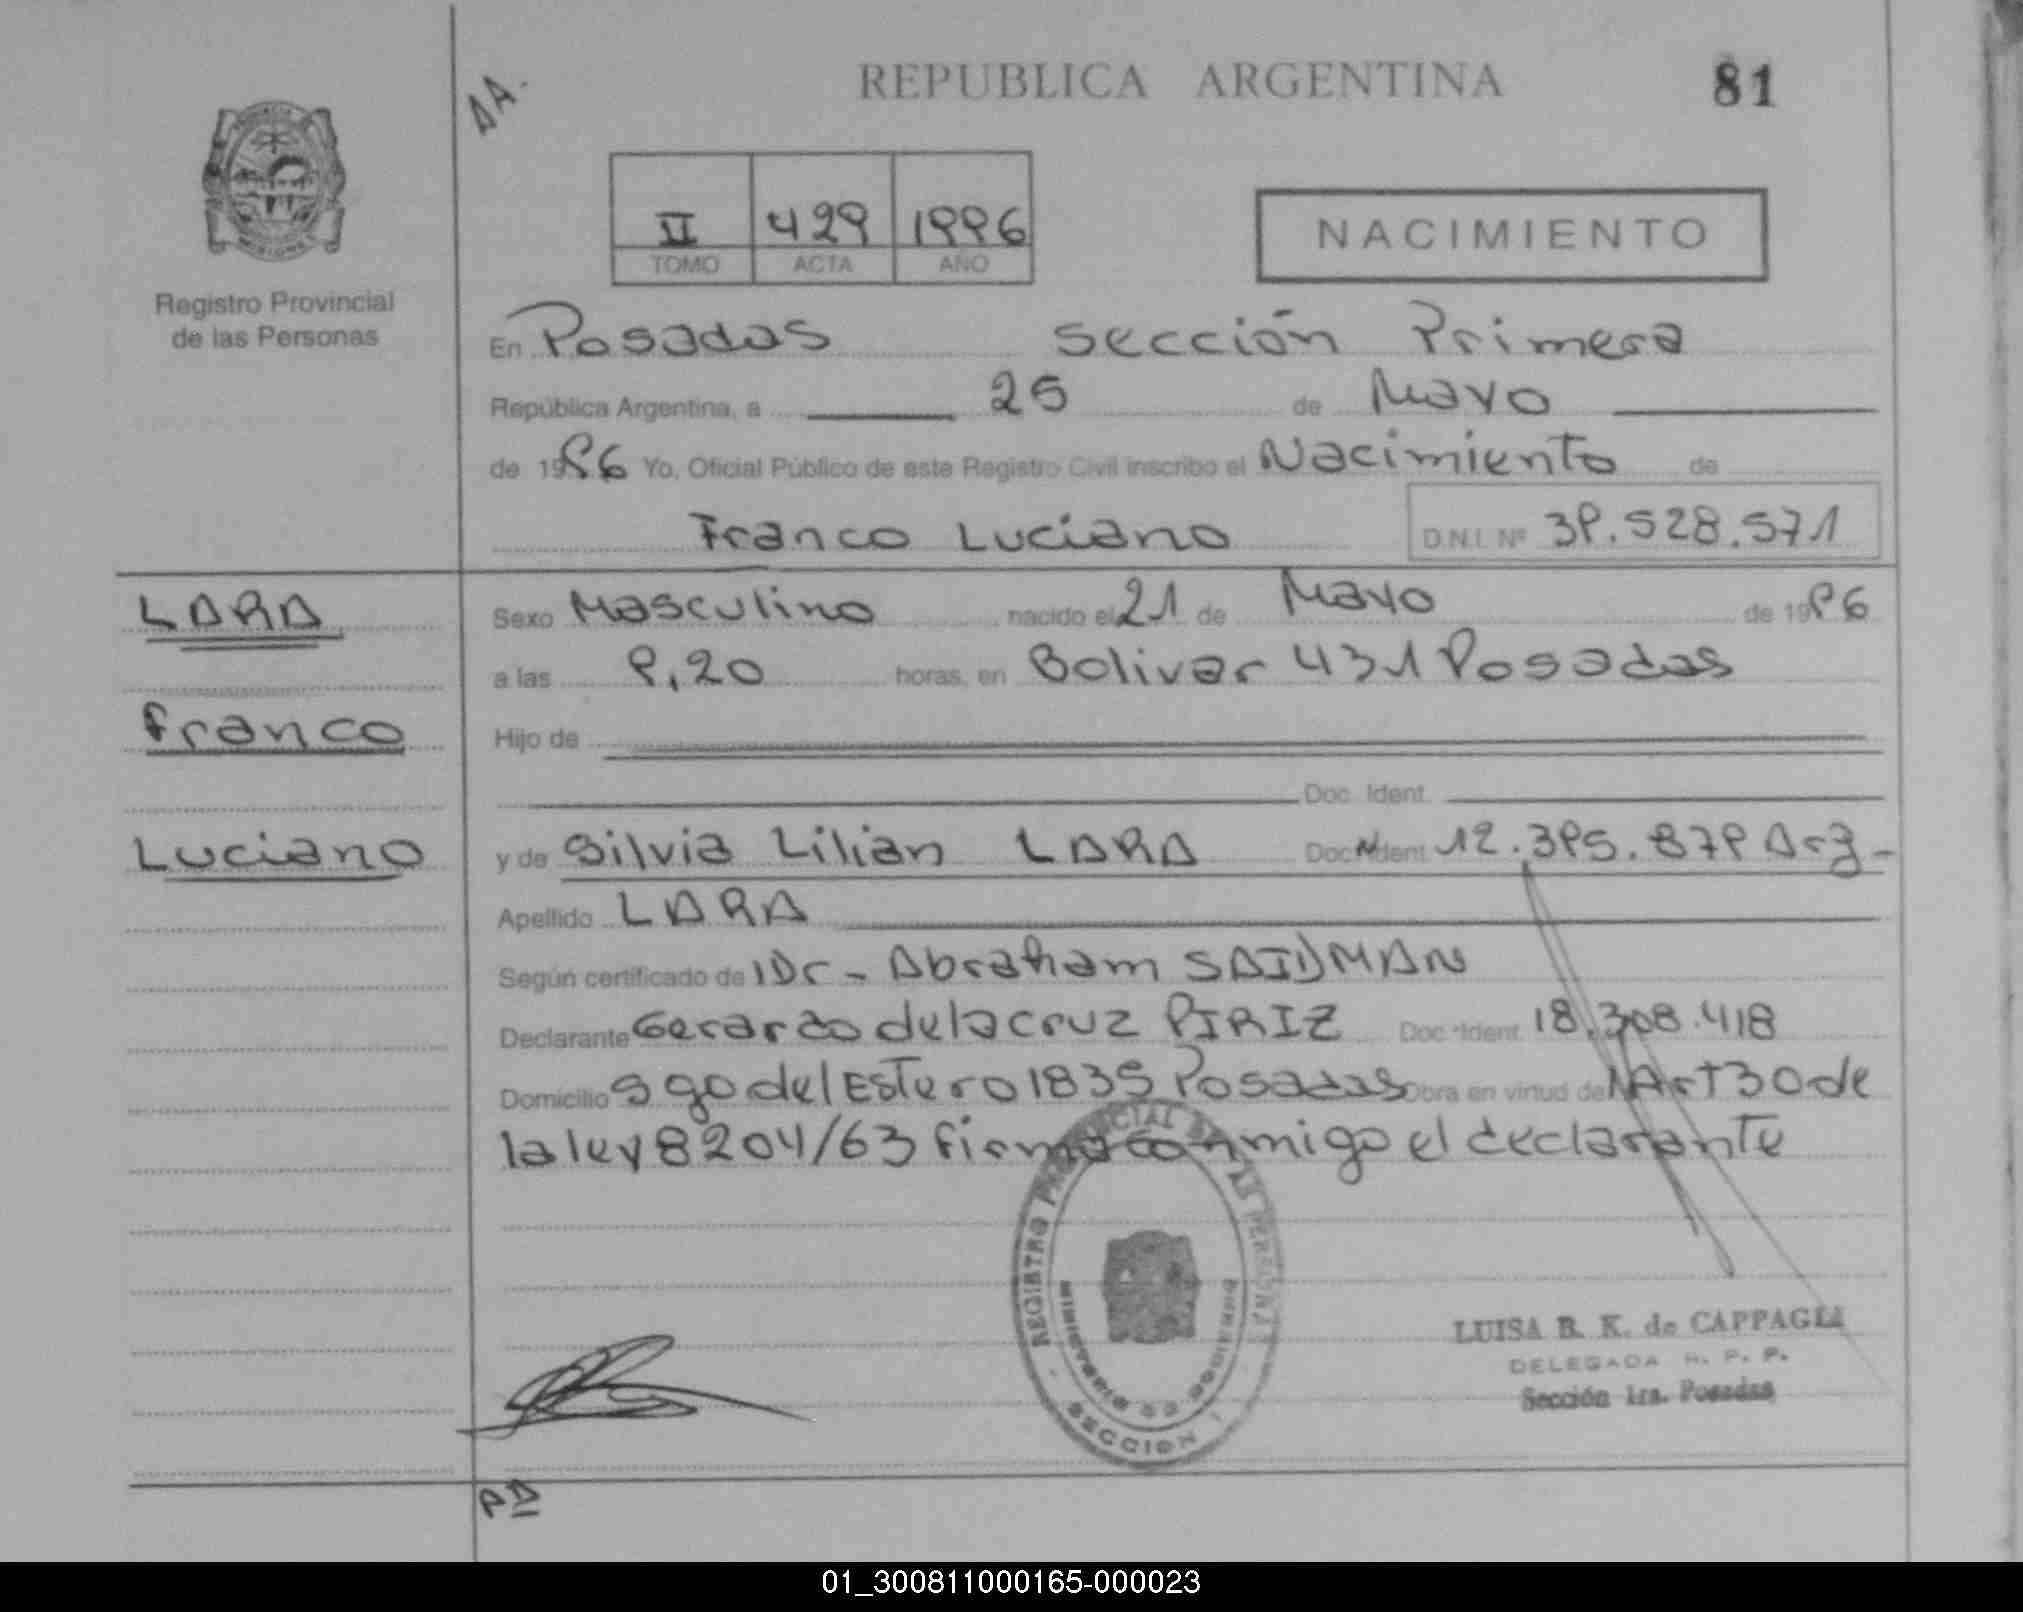 AA.
REPUBLICA ARGENTINA
81
II 429 1996
TOMO ACTA AÑO
NACIMIENTO
Registro Provincial
de las Personas
En Posadas sección Primera
República Argentina, a 25 de Mayo
de 1996 Yo, Oficial Público de este Registro Civil inscribo el Nacimiento de
Franco Luciano D.N.I. Nº 39.528.571
LARA Sexo Masculino nacido el 21 de Mayo de 1996
a las 9,20 horas, en Bolivar 431 Posadas
Franco Hijo de
Doc. Ident.
Luciano y de Silvia Lilian LARA Doc. Ident. 12.395.879 Arg-
Apellido LARA
Según certificado de Dr- Abraham SAIDMAN
Declarante Gerardo de la cruz PIRIZ Doc. Ident. 18.308.418
Domicilio Sgo del Estero 1835 Posadas Obra en virtud del Art 30 de
la ley 8204/63 firma conmigo el declarante
REGISTRO PROVINCIAL DE LAS PERSONAS
MINISTERIO DE GOBIERNO
SECCION
LUISA B. K. de CAPPAGLI
DELEGADA R. P. P.
Sección 1ra. Posadas
PD
01_300811000165-000023